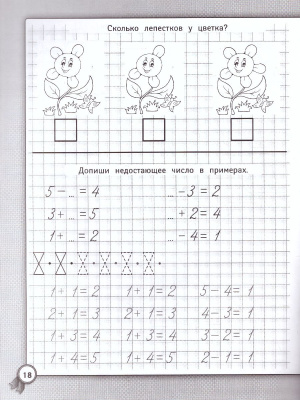 Сколько лепестков у цветка?
Допиши недостающее число в примерах.
5 – ... = 4 ... – 3 = 2
3 + ... = 5 ... + 2 = 4
1 + ... = 2 ... – 4 = 1
1 + 1 = 2 1 + 1 = 2 5 – 4 = 1
2 + 1 = 3 2 + 1 = 3 4 – 3 = 1
1 + 3 = 4 1 + 3 = 4 3 – 2 = 1
1 + 4 = 5 1 + 4 = 5 2 – 1 = 1
18